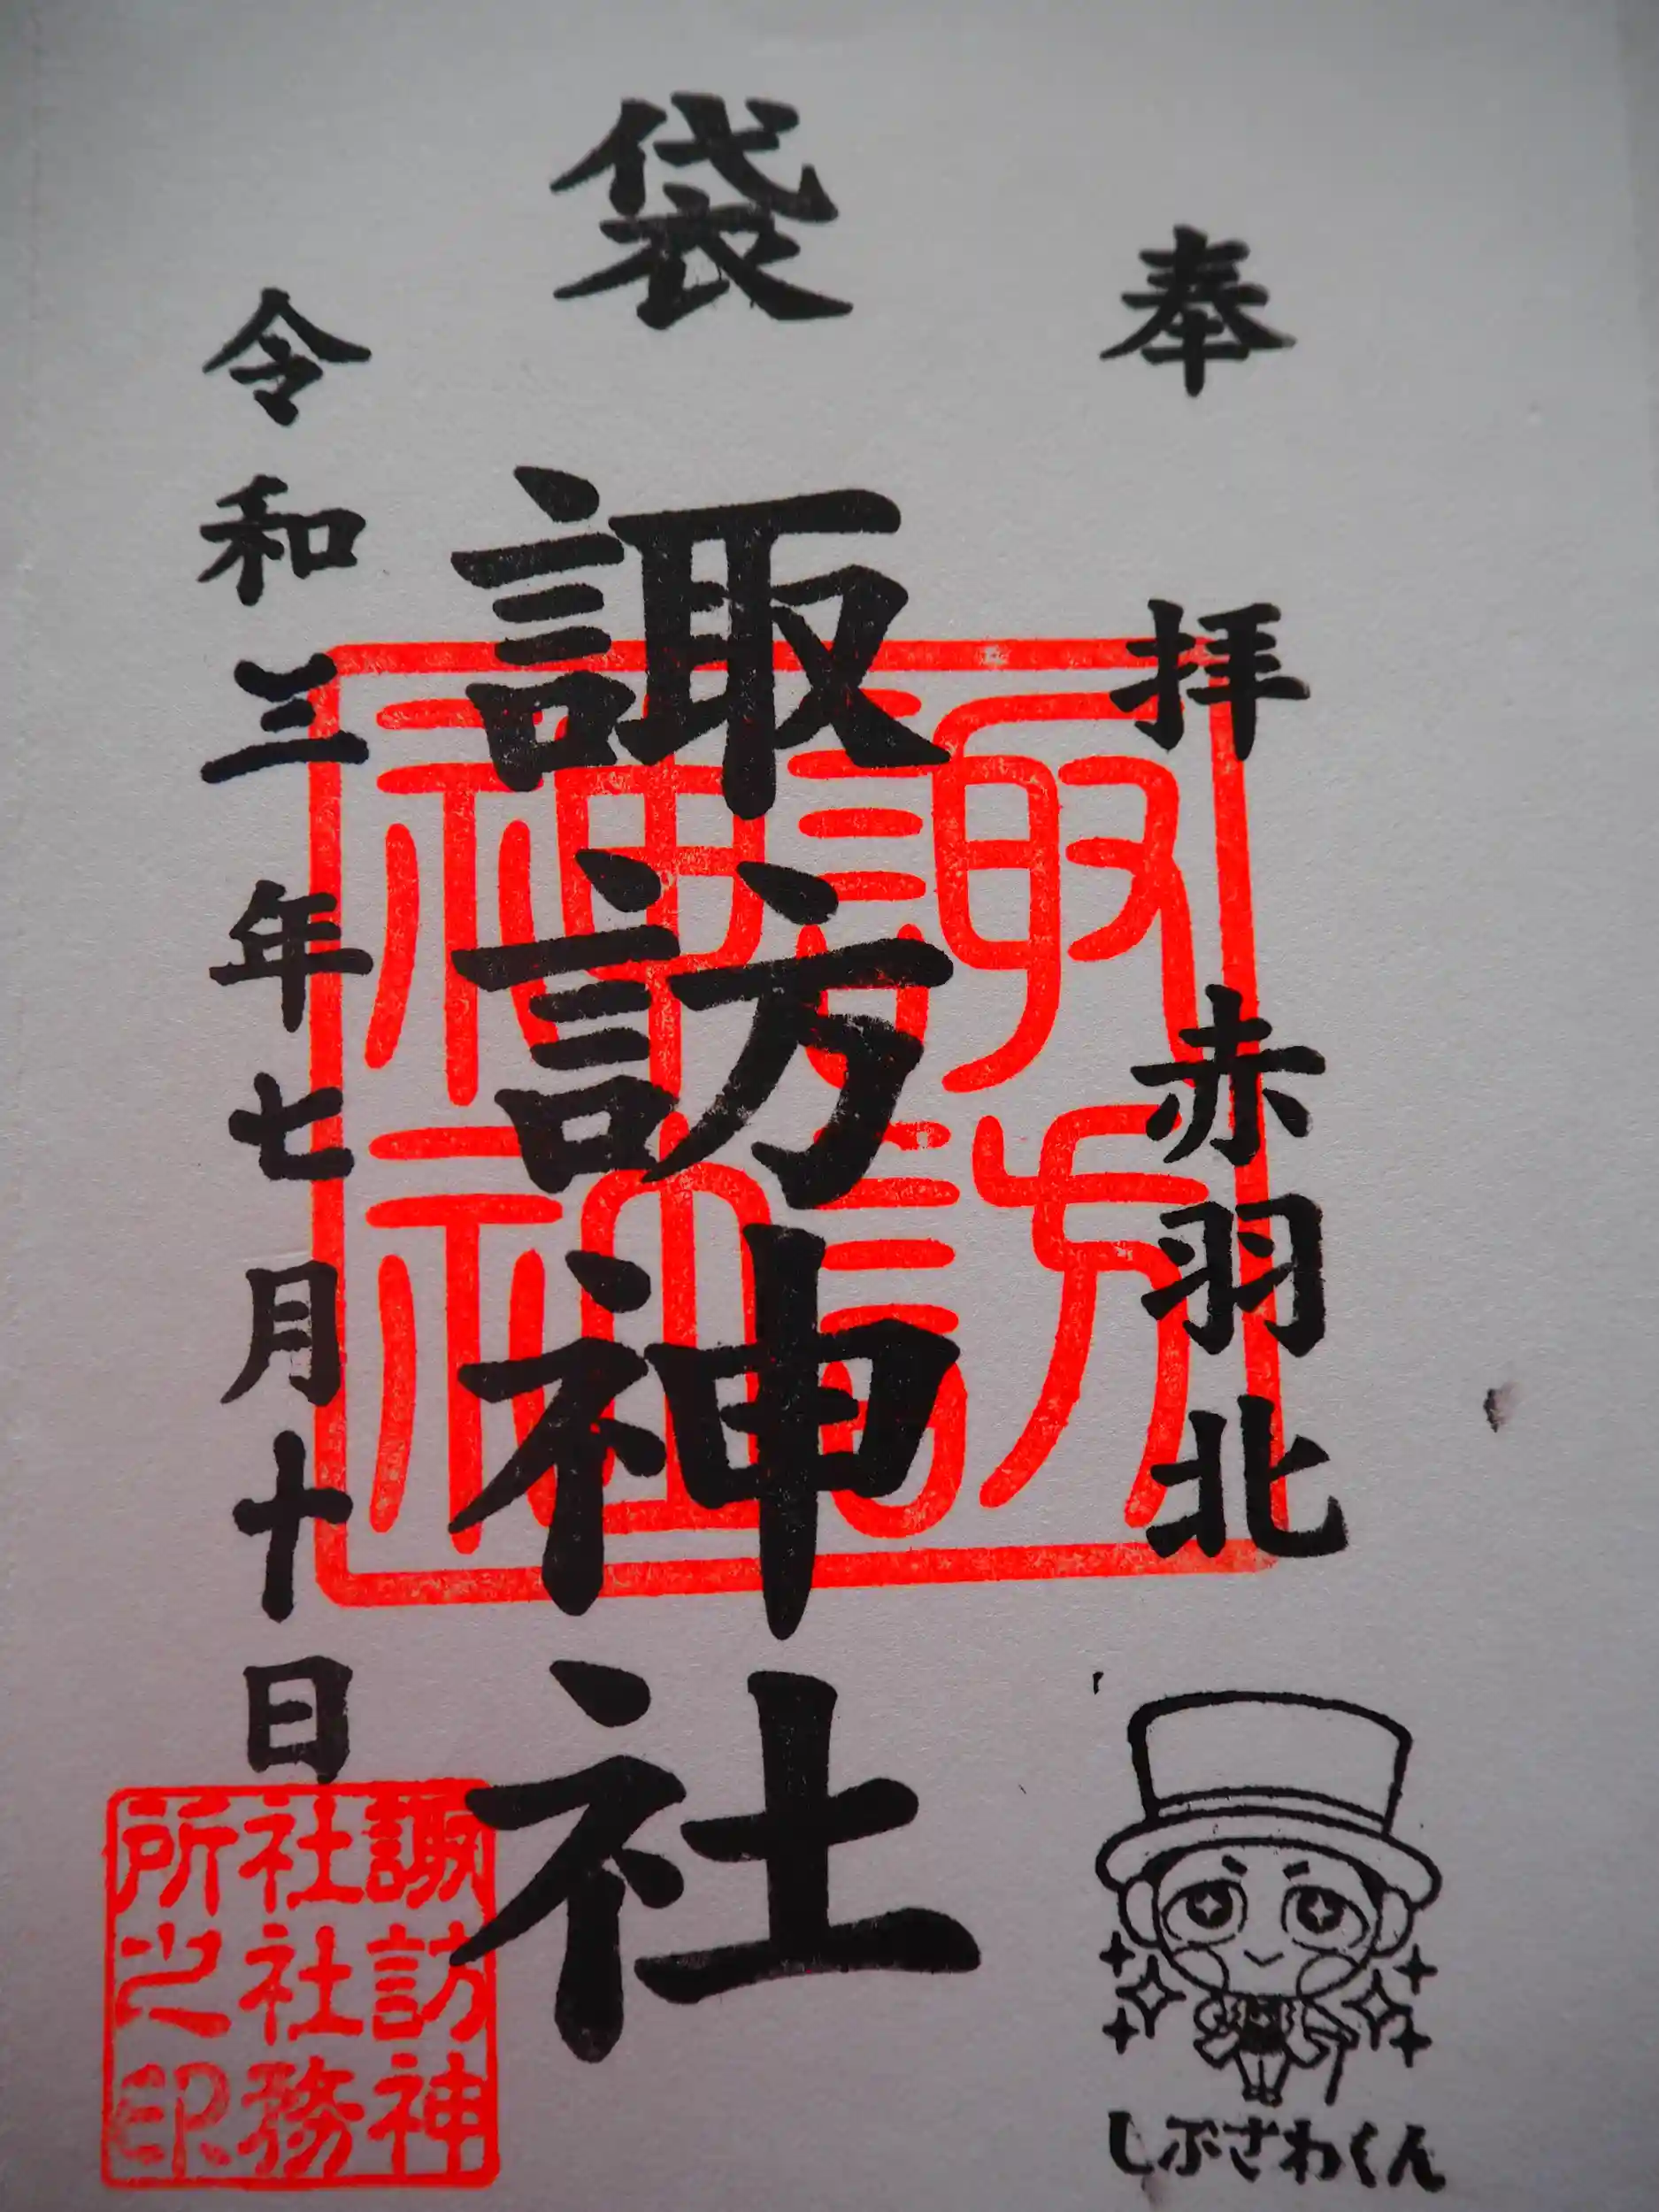 奉拝 赤羽北
しぶざわくん
袋 諏訪神社
諏訪
神社
令和三年七月十日
諏訪神
社社務
所之印